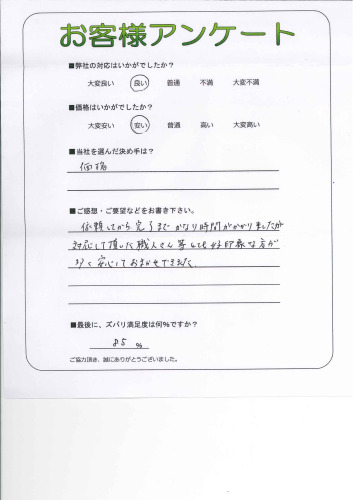 お客様アンケート
■弊社の対応はいかがでしたか?
大変良い 良い 普通 不満 大変不満
■価格はいかがでしたか?
大変安い 安い 普通 高い 大変高い
■当社を選んだ決め手は?
価格
■ご感想・ご要望などをお書き下さい。
依頼してから完了までかなり時間がかかりましたが
対応して頂いた職人さん等とても好印象な方が
多く安心しておまかせできました。
■最後に、ズバリ満足度は何%ですか?
85 %
ご協力頂き、誠にありがとうございました。